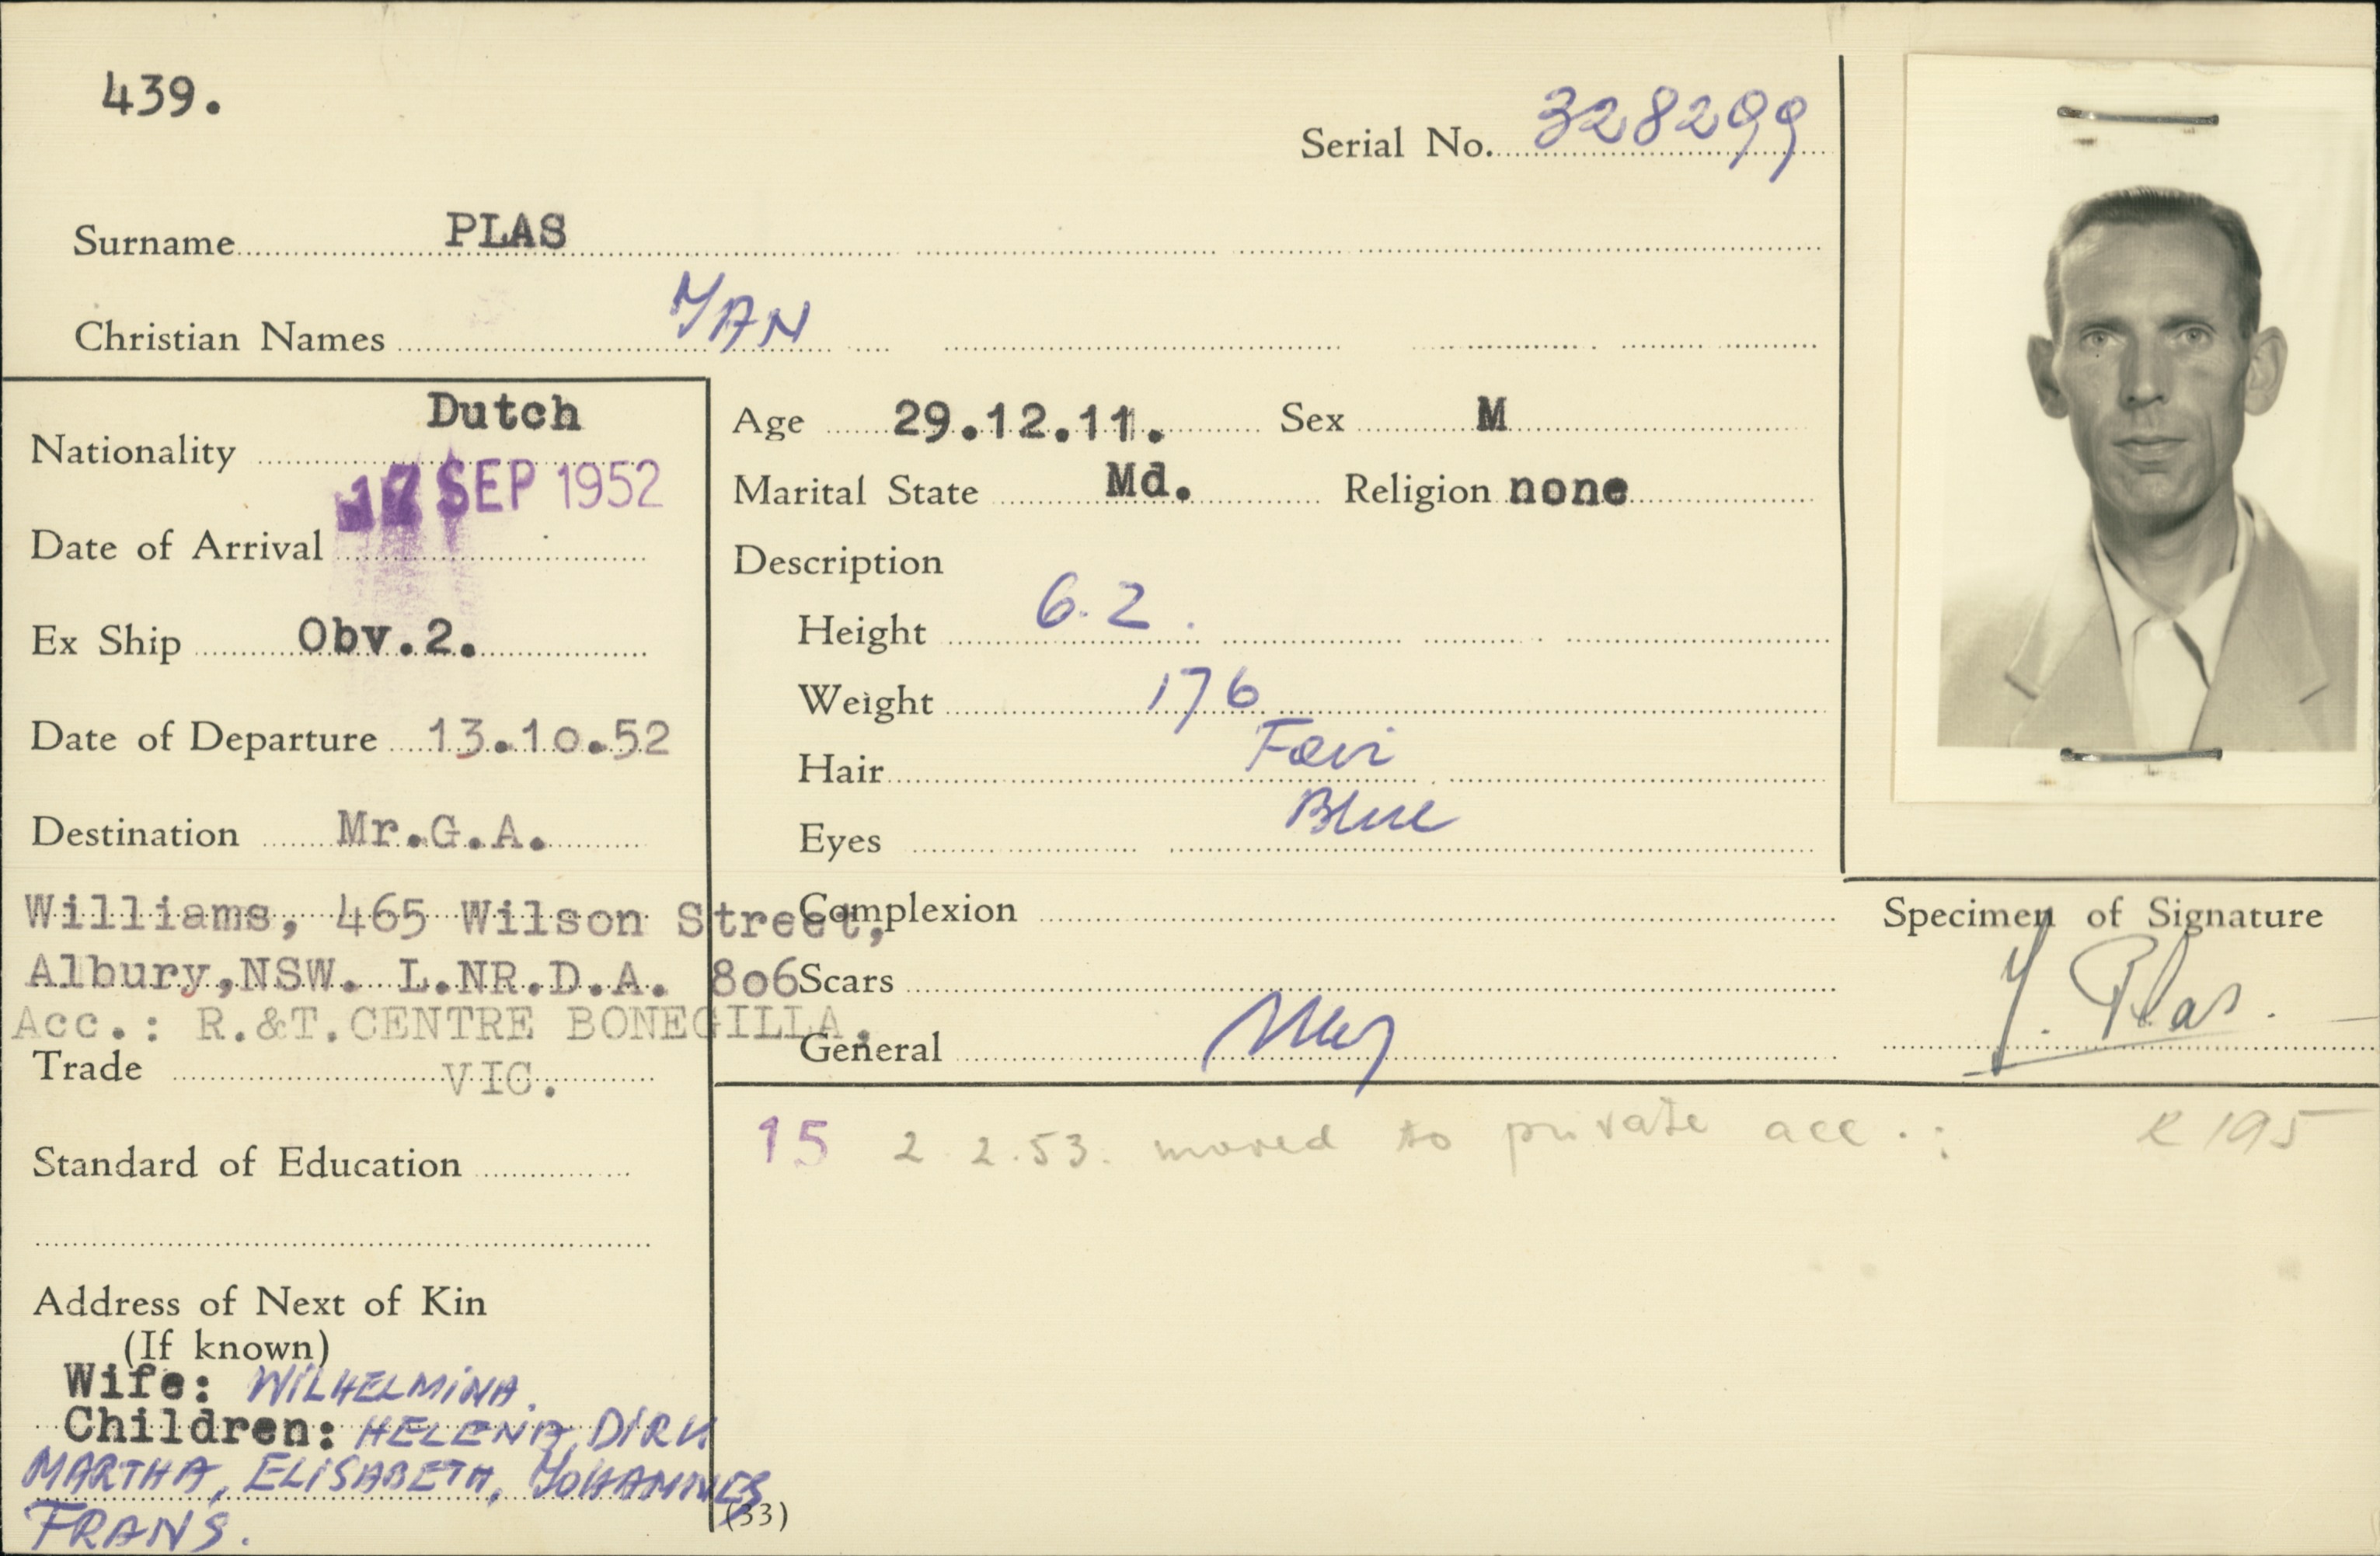 439.
Serial No. 328299
Surname PLAS
Christian Names YAN
Nationality Dutch
Date of Arrival 17 SEP 1952
Ex Ship Obv.2.
Date of Departure 13.10.52
Destination Mr.G.A.
Williams, 465 Wilson Street,
Albury,NSW. L.NR.D.A. 806
Acc.: R.&T.CENTRE BONEGILLA.
Trade VIC.
Standard of Education
Address of Next of Kin
(If known)
Wife: WILHELMINA.
Children: HELENA, DIRK
MARTHA, ELISABETH, YOHANNES
FRANS.
(33)
Age 29.12.11. Sex M
Marital State Md. Religion none
Description
Height 6.2.
Weight 176
Hair
Eyes Blue
Complexion
Scars
General
Specimen of Signature
Y. Plas.
15 2.2.53. moved to private acc.: R195